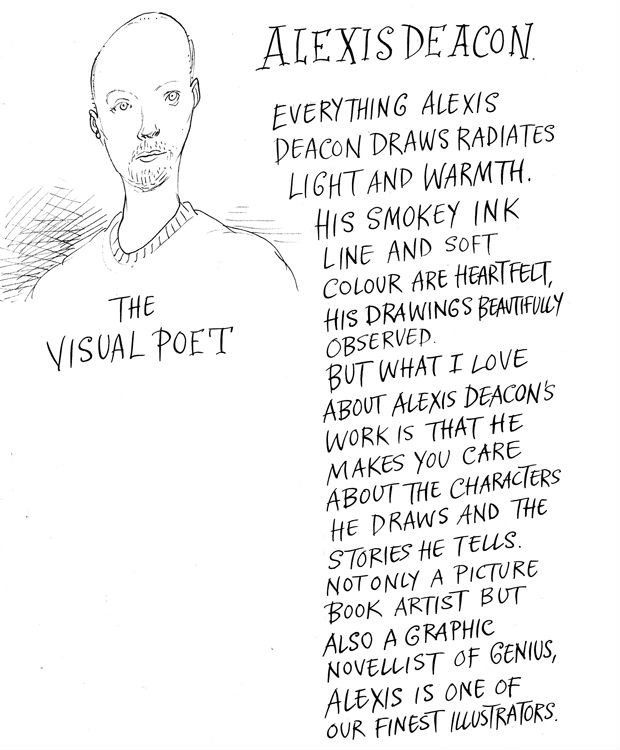 ALEXIS DEACON.
EVERYTHING ALEXIS
DEACON DRAWS RADIATES
LIGHT AND WARMTH.
HIS SMOKEY INK
LINE AND SOFT
COLOUR ARE HEARTFELT,
HIS DRAWINGS BEAUTIFULLY
OBSERVED.
BUT WHAT I LOVE
ABOUT ALEXIS DEACON'S
WORK IS THAT HE
MAKES YOU CARE
ABOUT THE CHARACTERS
HE DRAWS AND THE
STORIES HE TELLS.
NOT ONLY A PICTURE
BOOK ARTIST BUT
ALSO A GRAPHIC
NOVELLIST OF GENIUS,
ALEXIS IS ONE OF
OUR FINEST ILLUSTRATORS.
THE
VISUAL POET